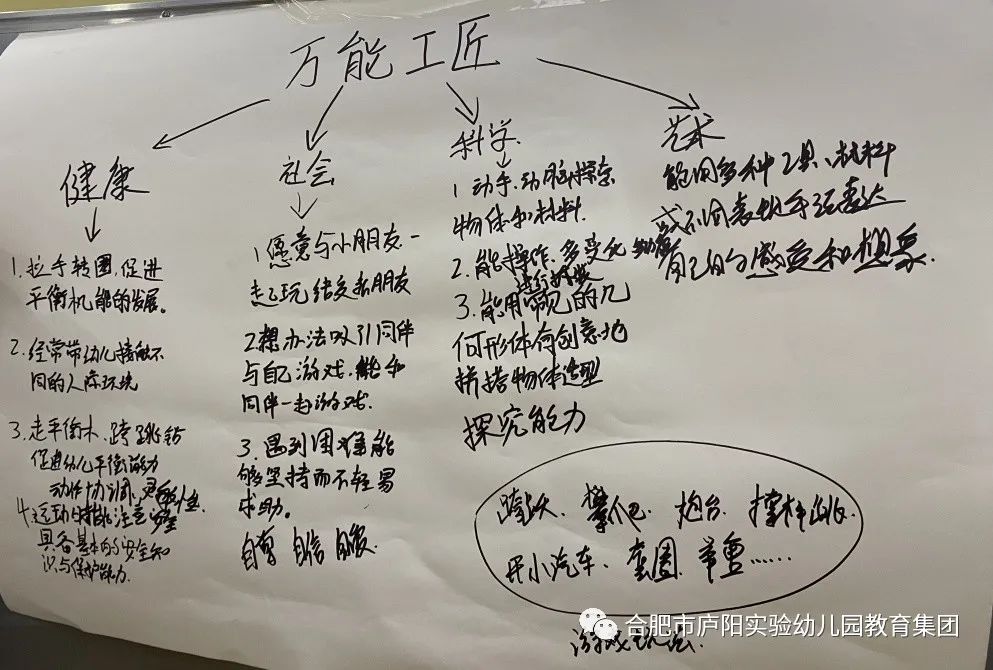 万能工匠
健康
1.拉手转圈,促进
平衡机能的发展。
2.经常带幼儿接触不
同的人际环境
3.走平衡木、跨跳钻
促进幼儿平衡能力
动作协调、灵敏性.
4.运动时能注意安全
具备基本的安全知
识与保护能力.
社会
1.愿意与小朋友一
起玩结交新朋友
2.想办法吸引同伴
与自己游戏.能和
同伴一起游戏.
3.遇到困难能
够坚持而不轻易
求助。
自尊 自信
科学
1.动手、动脑探索
物体和材料.
2.能操作、多变化
3.能用常见的几
何形体有创意地
拼搭物体造型
探究能力
艺术
能用多种工具、材料
或不同表现手法表达
自己的感受和想象.
跨跃、攀爬、炮台、撑杆跳
开小汽车、套圈、举重……
游戏玩法.
合肥市庐阳实验幼儿园教育集团